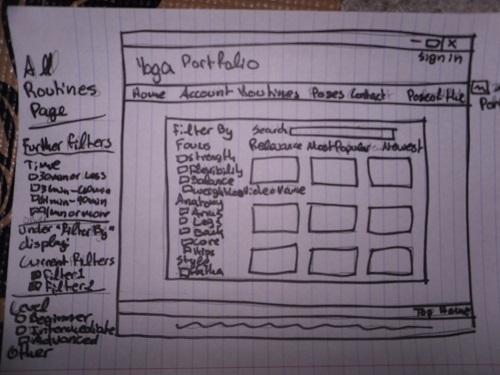 All
Routines
Page
Further Filters
Time
30min or less
31min-60min
61min-90min
91min or more
Under "Filter By"
display:
Current Filters
Filter 1
Filter 2
Level
Beginner
Intermediate
Advanced
Other
X
Sign In
Yoga Portfolio
Home Account Routines Poses Contact
Filter By
Focus
Strength
Flexibility
Balance
Weightloss
Anatomy
Arms
Legs
Back
Core
Hips
Style
Hatha
Search
Relevance Most Popular Newest
Video Name
Top Home